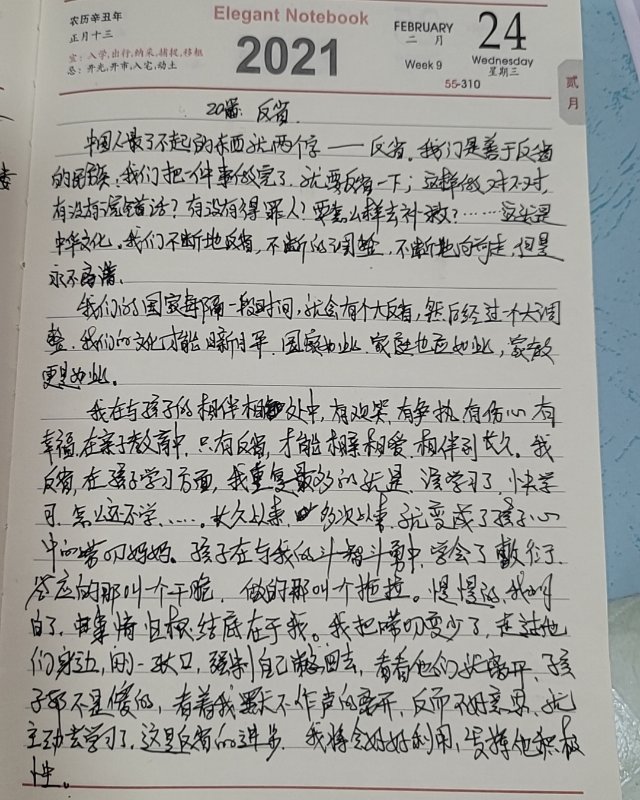 农历辛丑年
正月十三
宜：入学,出行,纳采,捕捉,移柩
忌：开光,开市,入宅,动土
Elegant Notebook
2021
FEBRUARY
二 月
Week 9
24
Wednesday
星期三
55-310
贰月
反省.
中国人最了不起的东西就两个字——反省。我们是善于反省
的民族，我们把一件事做完了，就要反省一下；这样做对不对,
有没有说错话？有没有得罪人？要怎么样去补救？……这就是
中华文化。我们不断地反省,不断的调整,不断地向前走,但是
永不
我们的国家每隔一段时间,就会有个大反省,然后经过一个大调
整.我们的文化才能日新月异.国家如此,家庭也应如此,家教
更是如此。
我在与孩子的相伴相处中,有欢笑.有争执.有伤心.有
幸福,在亲子教育中,只有反省,才能相亲相爱.相伴到长久。我
反省,在孩子学习方面,我重复最多的就是,该学习了,快学
习,怎么还不学……。长久以来,多次以来,就变成了孩子心
中的唠叨妈妈。孩子在与我的斗智斗勇中,学会了敷衍.
答应的那叫个干脆,做的那叫个拖拉。慢慢的我明
白了.事情归根结底在于我。我把唠叨变少了,走过他
们身边,刚一张口,强制自己憋回去,看看他们就离开,孩
子都不是傻的,看着我默不作声的离开,反而不好意思,就
主动去学习了.这是反省的进步.我将会好好利用,发挥他积极
性。